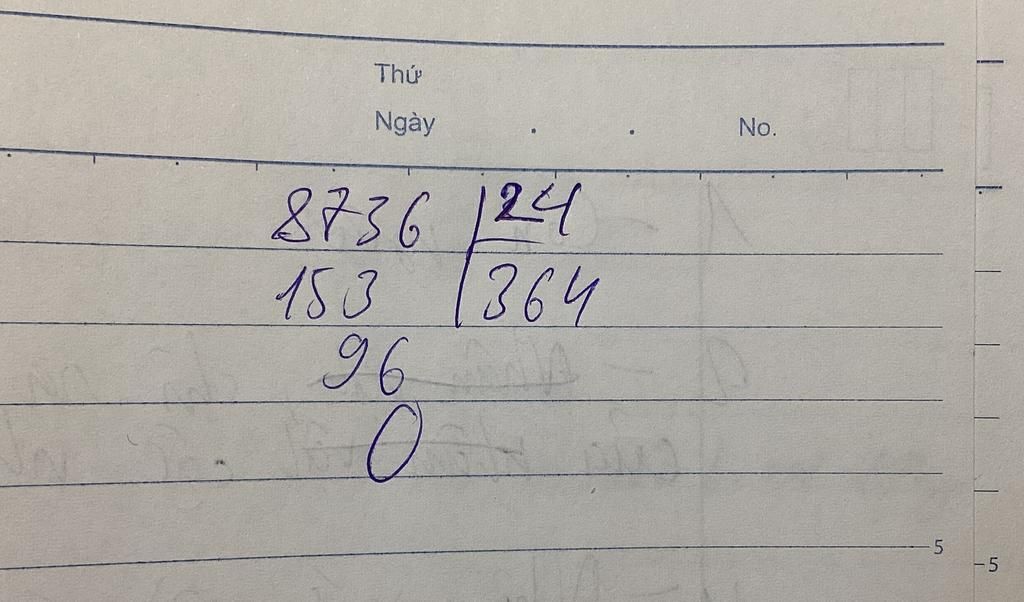 Thứ
Ngày . . No.
8736 24
153 364
96
0
5
5